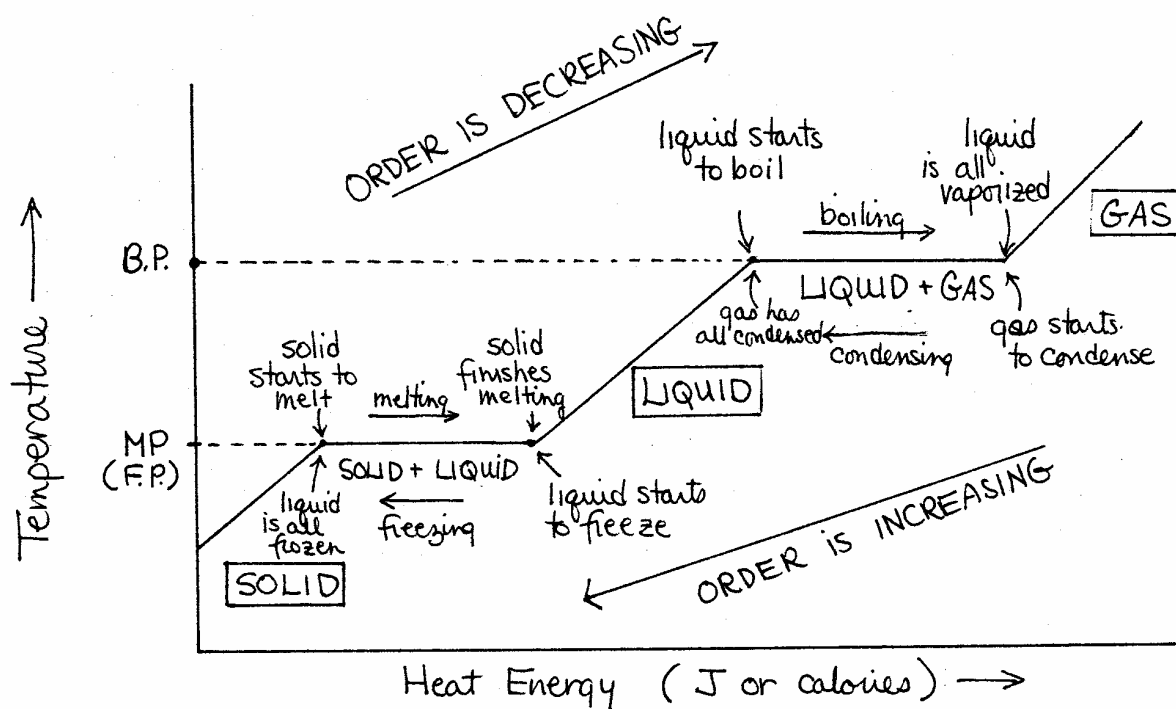 ORDER IS DECREASING
liquid starts
to boil
liquid
is all
vaporized
boiling
GAS
B.P.
LIQUID + GAS
gas has
all condensed
condensing
gas starts
to condense
solid
starts to
melt
melting
solid
finishes
melting
LIQUID
Temperature
MP
(F.P.)
SOLID + LIQUID
liquid
is all
frozen
freezing
liquid starts
to freeze
SOLID
ORDER IS INCREASING
Heat Energy (J or calories)